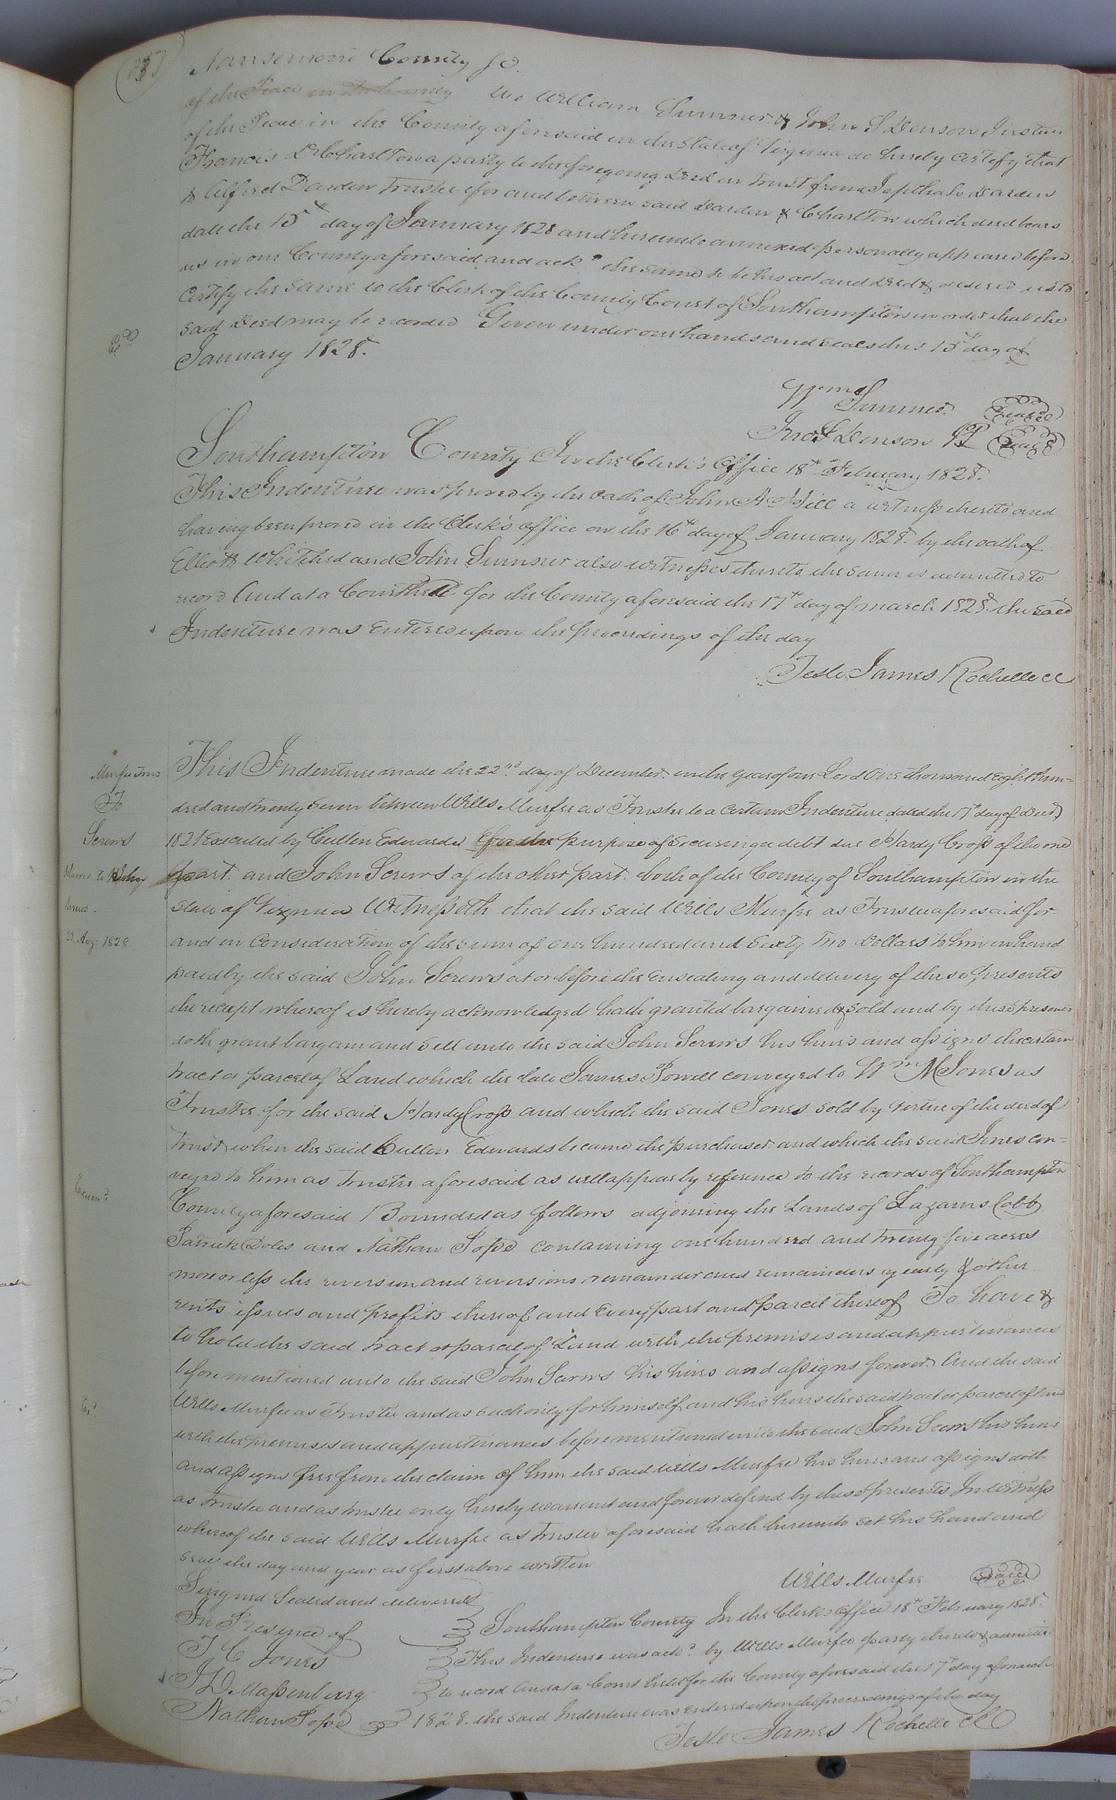 Nansemond County Sc.
of the Peace in the County We William Sumner & John S Denson Justices
of the Peace in the County aforesaid in the State of Virginia do hereby certify that
Francis D Charlton a party to the foregoing deed in trust from Jeptha Darden
& Alfred Darden Trustee for and between said Darden & Charlton which deed bears
date the 15th day of January 1828 and hereunto annexed personally appeared before
us in our County aforesaid and ackd the same to be his act and deed & desired us to
certify the same to the Clerk of the County Court of Southampton in order that the
said Deed may be recorded Given under our hands and seals this 15th day of
January 1828.
Wm Sumner Seal
Jno S Denson JP Seal
Southampton County In the Clerk's Office 18th February 1828.
This Indenture was proved by the oath of John A Hill a witness thereto and
having been proved in the Clerk's office on the 16th day of January 1828 by the oath of
Elliott Whitehed and John Sumner also witnesses thereto the same is admitted to
record And at a Court held for the County aforesaid the 17th day of March 1828 the said
Indenture was entered upon the proceedings of the day
Teste James Rochelle CC
Murfee Trus
To
Screws
21 Aug. 1828
This Indenture made the 22nd day of December in the year of our Lord One thousand Eight hun=
dred and twenty seven between Wills Murfee as Trustee to a certain Indenture dated the 7th day of Decr
1821 Executed by Cullen Edwards for the purpose of Securing a debt due Hardy Cross of the one
part and John Screws of the other part both of the County of Southampton in the
State of Virginia Witnesseth that the said Wills Murfee as Trustee aforesaid for
and in Consideration of the sum of one hundred and Sixty two Dollars to him in hand
paid by the said John Screws at or before the ensealing and delivery of these presents
the receipt whereof is hereby acknowledged hath granted bargained & sold and by these presents
doth grant bargain and sell unto the said John Screws his heirs and assigns the certain
tract or parcel of Land which the late James Powell conveyed to Wm M Jones as
Trustee for the said Hardy Cross and which the said Jones sold by vertue of the deed of
trust when the said Cullen Edwards became the purchaser and which the said Jones con=
veyed to him as trustee aforesaid as will appear by reference to the records of Southampton
County aforesaid Bounded as follows adjoining the Lands of Lazarus Cobb
Patrick Doles and Nathan Pope containing one hundred and twenty five acres
more or less the reversion and reversions remainder and remainders yearly & other
rents issues and profits thereof and Every part and parcel thereof To have &
to hold the said tract or parcel of Land with the premises and appurtenances
before mentioned unto the said John Screws his heirs and assigns forever And the said
Wills Murfee as Trustee and as such only for himself and his heirs the said tract or parcel of land
with the premises and appurtenances before mentioned unto the said John Screws his heirs
and assigns free from the claim of him the said Wills Murfee his heirs and assigns doth
as trustee and as trustee only hereby warrant and forever defend by these presents In Witness
whereof the said Wills Murfee as trustee aforesaid hath hereunto set his hand and
seal the day and year as first above written
Wills Murfee Seal
Singned Sealed and delivered
In Presence of
T C Jones
J D Massenburg
Nathan Pope
Southampton County In the Clerks Office 18th February 1828.
This Indenture was ackd by Wills Murfee party thereto & admitted
to record And at a Court held for the County aforesaid the 17th day of march
1828. the said Indenture was entered upon the proceedings of the day
Teste James Rochelle CC